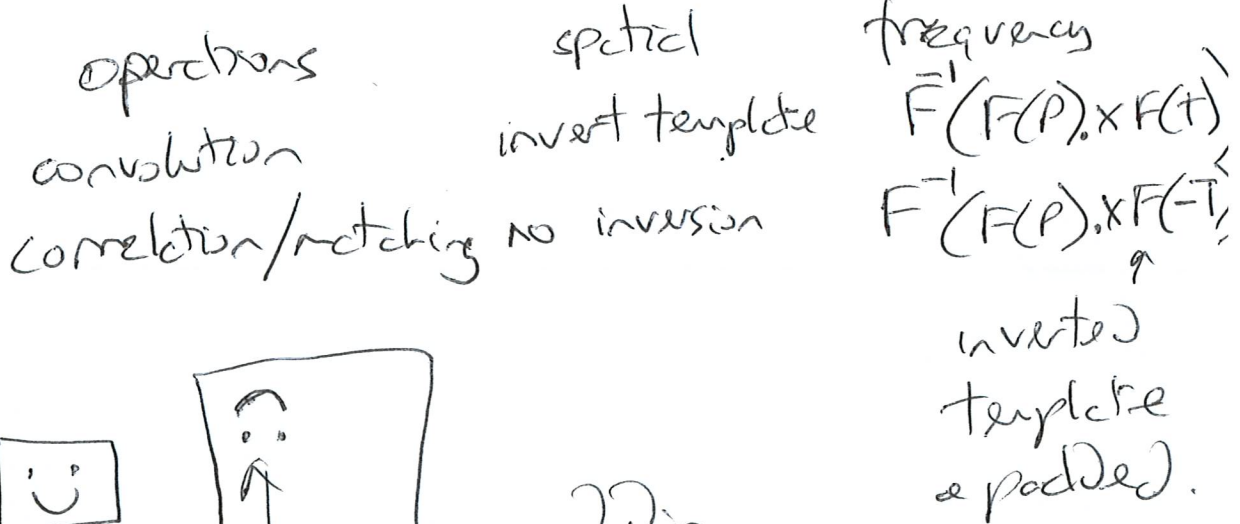 operations spatial frequency
convolution invert template F⁻¹(F(P).×F(T))
correlation/matching no inversion F⁻¹(F(P).×F(-T))
inverted
template
& padded.